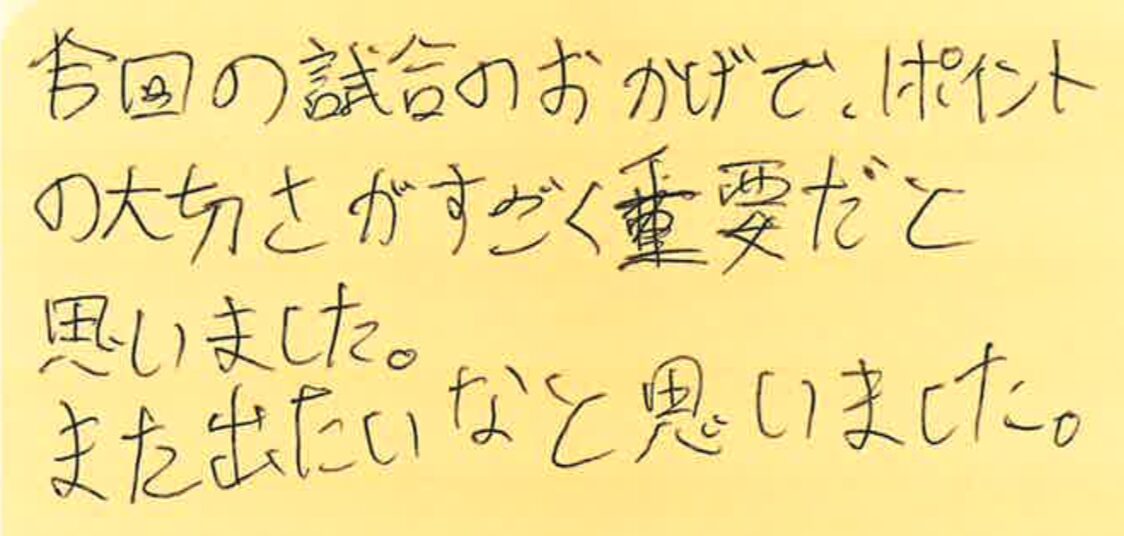 今回の試合のおかげで、ポイント
の大切さがすごく重要だと
思いました。
また出たいなと思いました。